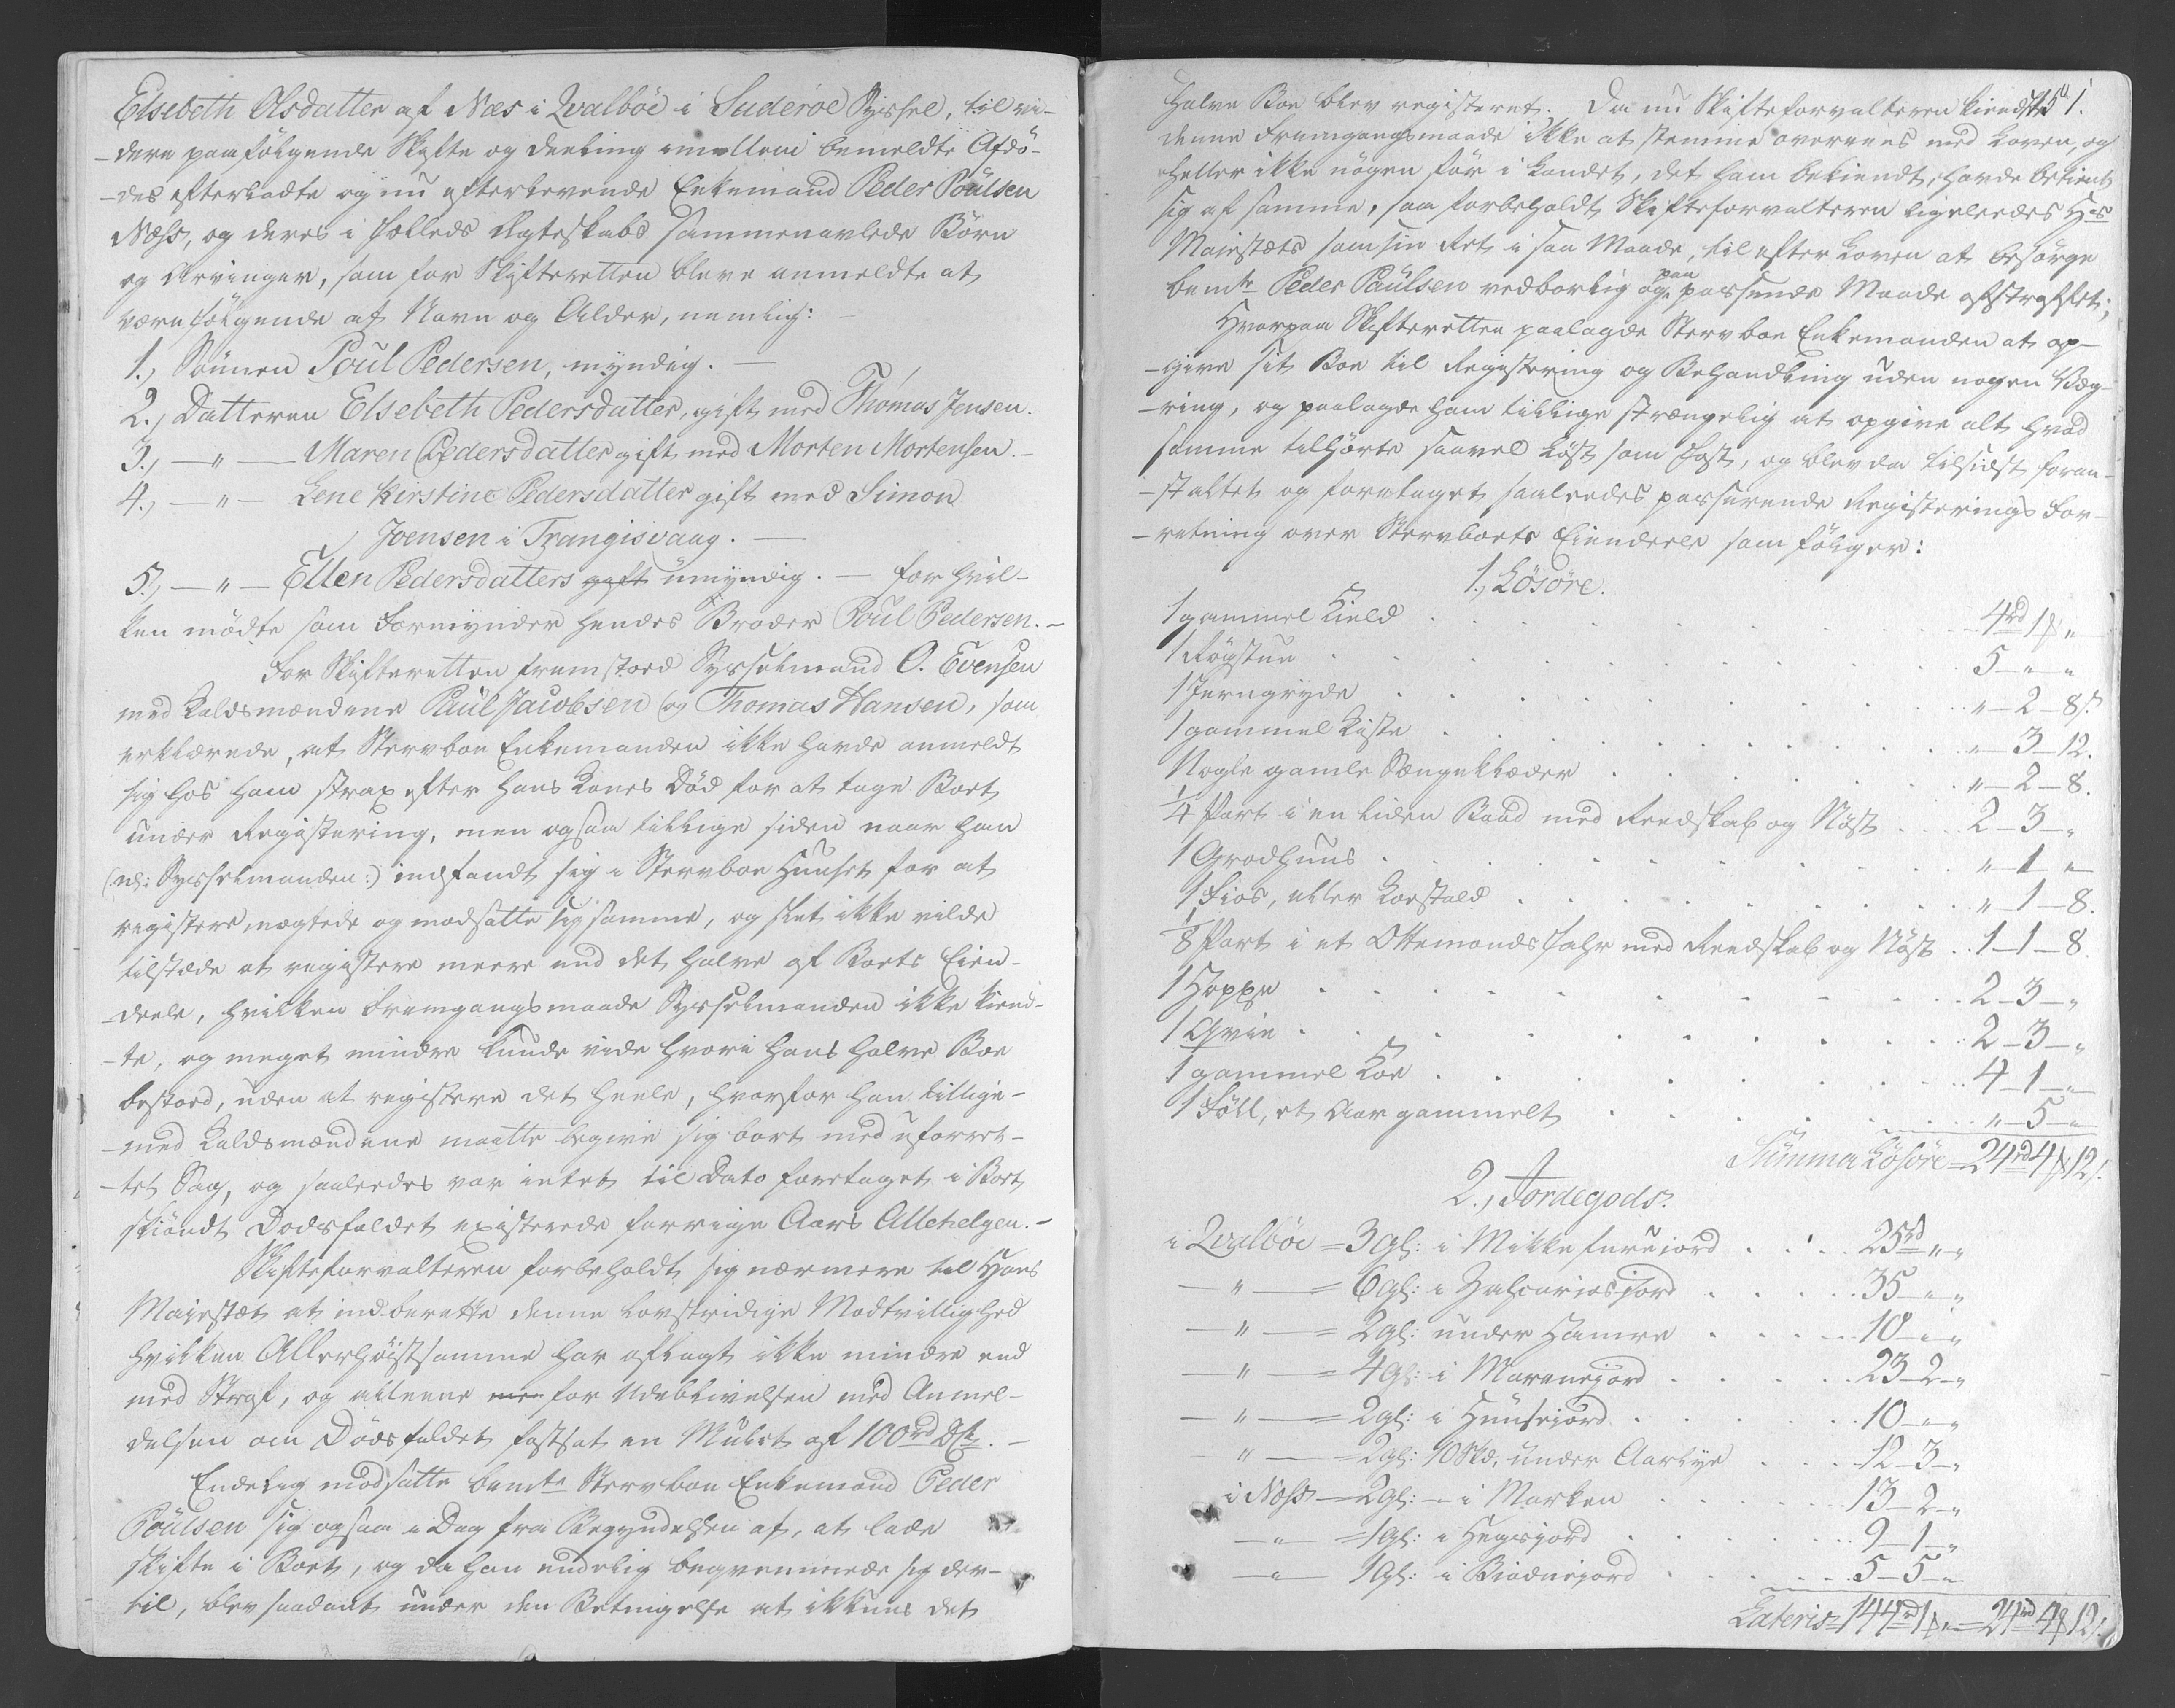 Elsebeth Olsdatter af Næs i Qvalböe i Suderöe Syssel, til vi-
-dere paafölgende Skifte og Deeling imellem bemeldte Afdö-
-des efterladte og nu efterlevende Enkemand Peder Poulsen
Næss, og deres i fælleds Ægteskabs sammenavlede Börn
og Arvinger, som for Skifteretten bleve anmeldte at
være fölgende af Navn og Alder, nemlig:
1., Sönnen Poul Pedersen, myndig. —
2., Datteren Elsebeth Pedersdatter, gift med Thomas Jensen.
3., — " — Maren Pedersdatter gift med Morten Mortensen. —
4., — " — Lene Kirstine Pedersdatter gift med Simon
Joensen i Trangisvaag. —
5., — " — Ellen Pedersdatters gift umyndig. — for hvil-
ken mödte som Formynder hendes Broder Poul Pedersen. —
For Skifteretten fremstoed Sysselmand O. Evensen
med Laldsmændene Paul Jacobsen og Thomas Hansen, som
erklærede, at Stervboe Enkemanden ikke havde anmeldt
sig hos ham strax efter hans Kones Död for at tage Boet
under Registering, men ogsaa tillige siden naar han
(:nl: Sysselmanden:) indfandt sig i Stervboe Huuset for at
registere, nægtede og modsatte sig samme, og slet ikke vilde
tilstæde at registere meere end det halve af Boets Eien-
-deele, hvilken Fremgangsmaade Sysselmanden ikke kiend-
-te, og meget mindre kunde vide hvori hans halve Boe
bestoed, uden at registere det heele, hvorfor han tillige-
-med Laldsmændene maatte begive sig bort med uforret-
-tet Sag, og saaledes var intet til Dato foretaget i Boet
skiöndt Dödsfaldet existerede forrige Aars Allehelgen. —
Skifteforvalteren forbeholdt sig nærmere til Hans
Majestæt at indberette denne lovstridige Modvillighed
hvilken Allerhöistsamme har aflagt ikke mindre end
med Straf, og alleene men for Udeblivelsen med Anmel-
delsen om Dödsfaldet fastsat en Mulct af 100rd —
Endelig modsatte bemte Stervboe Enkemand Peder
Poulsen sig ogsaa i Dag fra Begyndelsen af, at lade
skifte i Boet, og da han endelig beqvemmede sig der-
til, blev saadant under den Betingelse at ikkuns det
151.
halve Boe blev registeret. Da nu Skifteforvalteren kiendte
denne Fremgangsmaade ikke at stemme overeens med Loven, og
heller ikke nogen för i Landet, det ham bekiendt, havde betient
sig af samme, saa forbeholdt Skifteforvalteren ligeledes Hs
Majestæts samsin Ret i saa Maade, til efter Loven at besörge
bemte Peder Paulsen vedborlig og paa passende Maade afstraffet;
Hvorpaa Skifteretten paalagde Stervboe Enkemanden at op-
-give sit Boe til Registering og Behandling uden nogen Væg-
-ring, og paalagde ham tillige strængelig at opgive alt hvad
samme tilhörte saavel Löst som Fast, og blev da tilsidst foran-
-staltet og foretaget saaledes passerende Registerings For-
-retning over Stervboets Eiendeele som fölger:
1., Lösöre.
1 gammel Kield . . . 4rd 1 "
1 Rögstue . . . 5 " "
1 Jerngryde . . . " 2 8
1 gammel Kiste . . . " 3 12.
Nogle gamle Sængeklæder . . . " 2 8.
1/4 Part i en liden Baad med Reedskab og Nöst . . . 2 3 "
1 Grodhuus . . . " 1 "
1 Fios, eller Koestald . . . " 1 8.
1/8 Part i et Ottemands Fahr med Reedskab og Nöst . . 1 1 8.
1 Hoppe . . . 2 3 "
1 Qvie . . . 2 3 "
1 gammel Koe . . . 4 1 "
1 Föll, et Aar gammelt . . . " 5 "
Summa Lösöre = 24rd 4 12
2., Jordegods.
i Qvalböe = 3 gl: i Mikkeferuejord . . . 25rd " "
— " — = 6 gl: i Zacharias jord . . . 35 " "
— " — = 2 gl: under Hamre . . . 10 " "
— " — = 4 gl: i Marenejord . . . 23 2 "
— " — = 2 gl: i Huusejord . . . 10 " "
— " — = 2 gl: 10 Skd, under Aarlye . . . 12 3 "
i Næss — 2 gl: — i Marken . . . 13 2 "
— " — = 1 gl: i Hegejord . . . 9 1 "
— " — 1 gl: i Biadnejord . . . 5 5 "
Lateris 144rd 1 " = 24rd 4 12